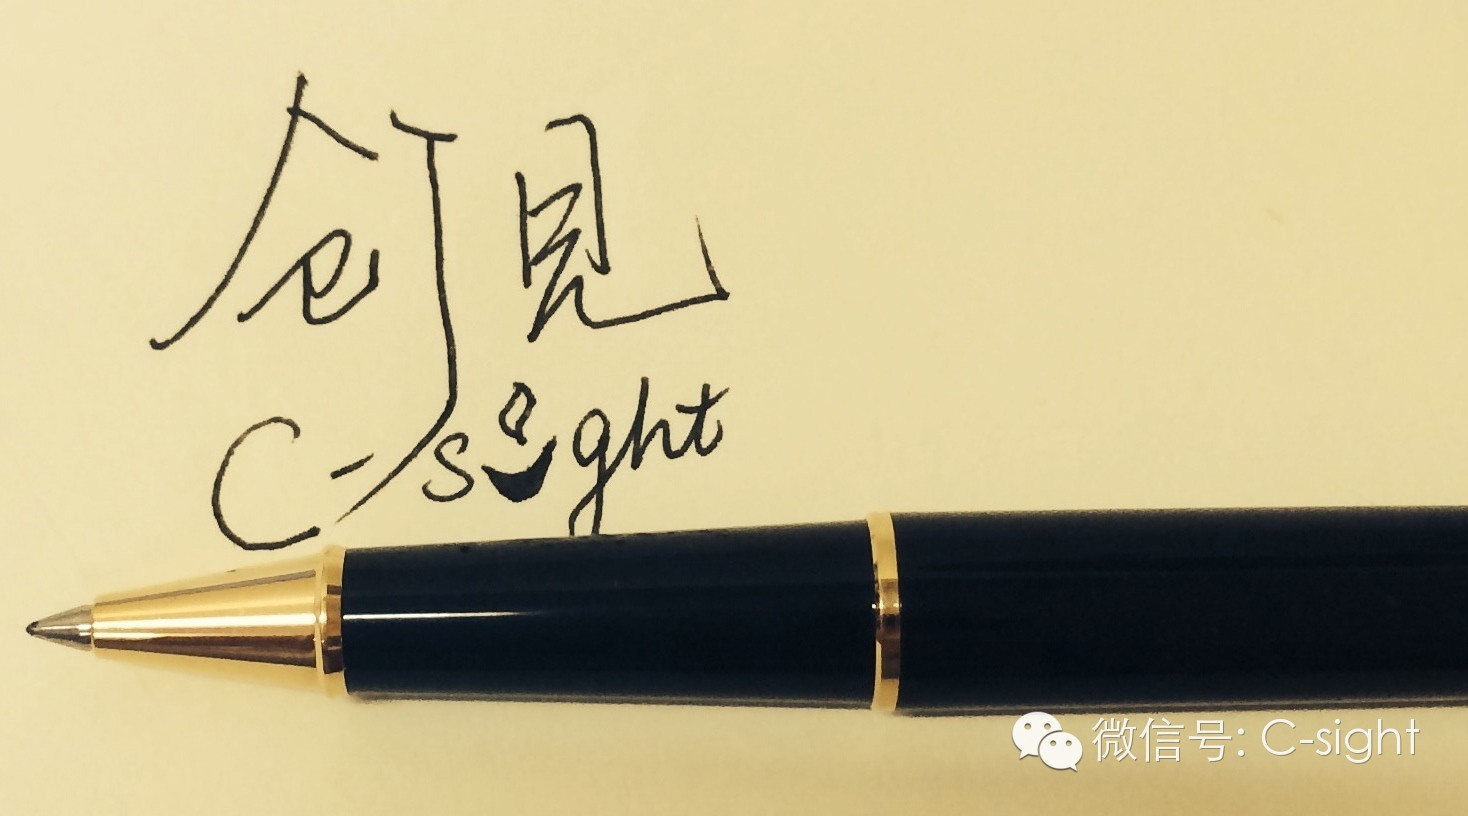 创見
C-sight
微信号: C-sight